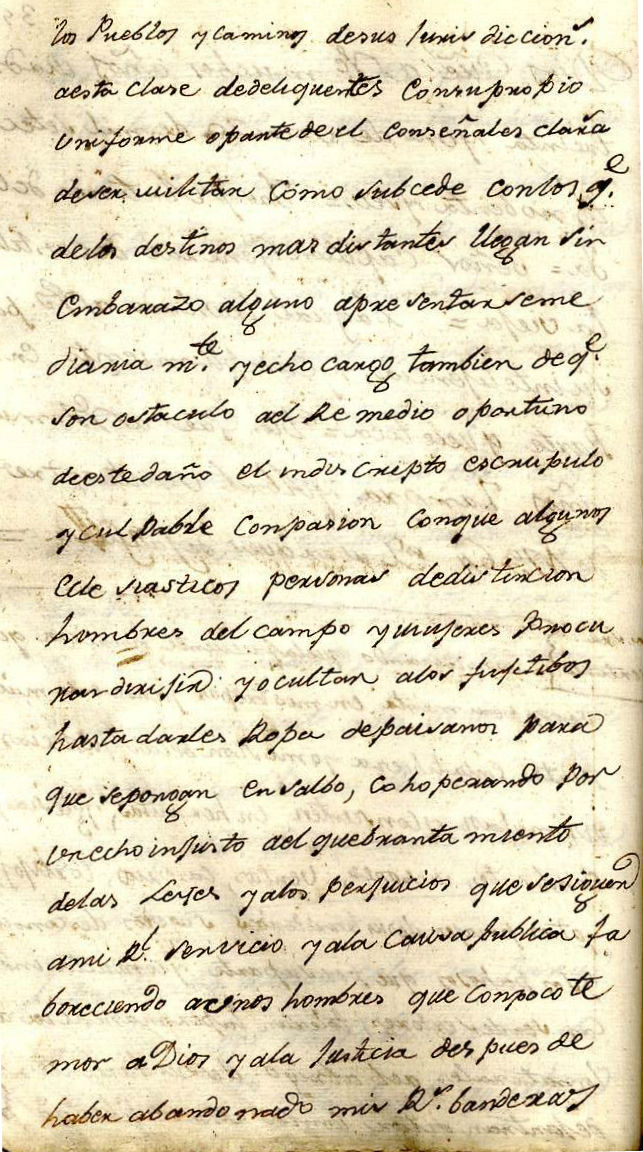 los Pueblos y caminos desus Juris diccion.s
aesta clase dedeliquentes Consupropio
Uniforme oparte de el Conseñales clara
deser militar como subcede conlos q.e
delos destinos mas distantes llegan sin
Embarazo alguno apresentarseme
diaria m.te y echo cargo tambien de q.e
son ostaculo ael Remedio oportuno
deeste daño el indiscripto escrupulo
y culpable Conpasion Conque algunos
Ecle siasticos personas dedistincion
hombres del campo ymujeres procu
ran dirijir y ocultar alos fujitibos
hasta darles Ropa depaisanos para
que sepongan ensalbo, cohoperando por
un echo injusto ael quebranta miento
delas Leyes yalos perjuicios que sesiguen
ami R.l servicio yala Causa publica fa
boreciendo aunos hombres que Conpoco te
mor a Dios yala Justicia des pues de
haber abandonado mis R.s banderas